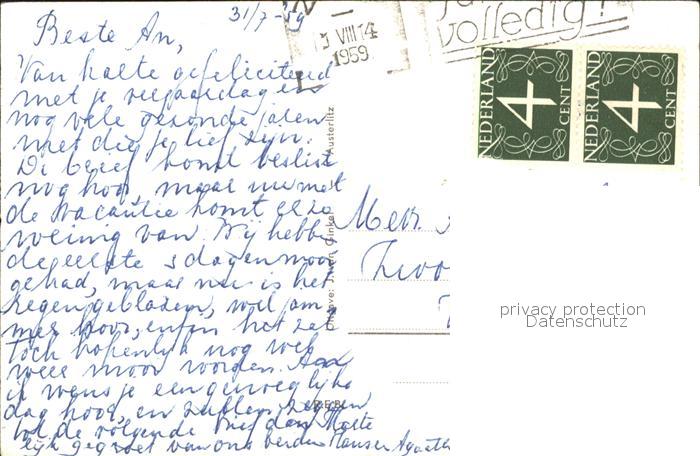 31/7-'59
Beste An,
Van harte gefeliciteerd
met je verjaardag en
nog vele gezonde jaren
met die je lief zijn.
De brief komt beslist
nog hoor, maar nu met
de vacantie komt er zo
weinig van. Wij hebben
de eerste 3 dagen mooi
gehad, maar nu is het
regen geblazen, wel jam-
mer hoor, enfin het zal
toch hopenlijk nog wel
weer mooi worden. An
ik wens je een genoeglijke
dag hoor, en zullen zeggen
tot de volgende brief dan. Harte
lijk gegroet van ons
VIII 14
1959
volledig!
NEDERLAND
4
CENT
NEDERLAND
4
CENT
Uitgave: J. van Ginkel, Austerlitz
Mevr.
privacy protection
Datenschutz